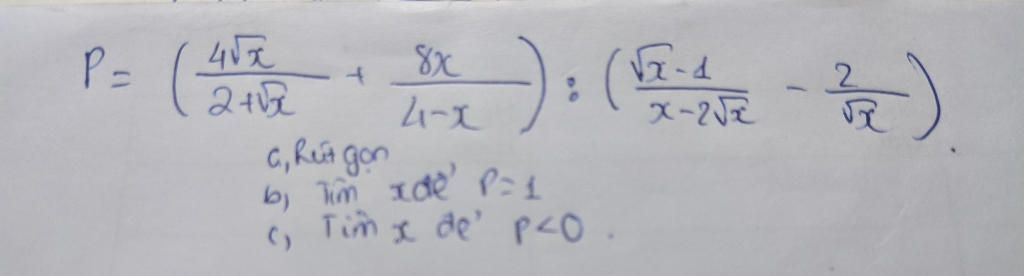 P = ( 4√x / (2+√x) + 8x / (4-x) ) : ( (√x-1) / (x-2√x) - 2 / √x ).
a, Rút gọn
b, Tìm x để P=1
c, Tìm x để p<0.